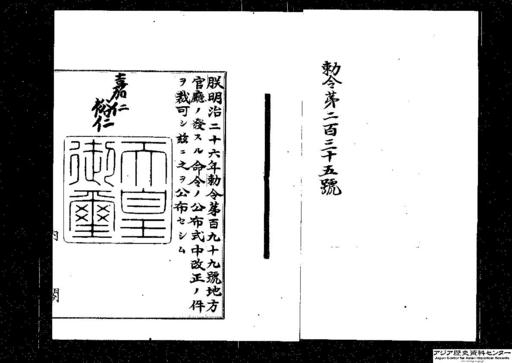 勅令第二百三十五號
朕明治二十六年勅令第百九十九號地方
官廳ノ發スル命令ノ公布式中改正ノ件
ヲ裁可シ玆ニ之ヲ公布セシム
嘉仁
裕仁
天皇
御璽
内
閣
アジア歴史資料センター
Japan Center for Asian Historical Records